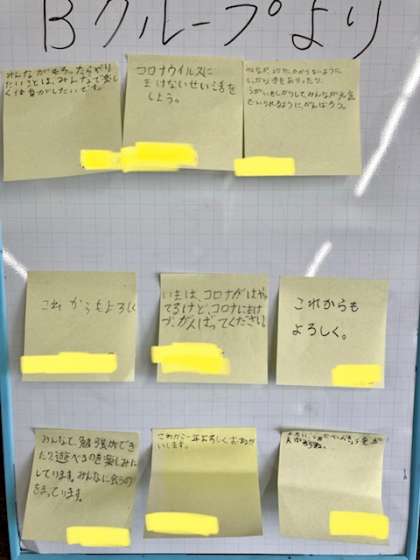 Bグループより
みんながもどったらやり
たいことは、みんなで楽し
くは
がしたいです。
コロナウイルスに
まけないせい活を
しよう。
しっかり手をあらったり、
うがいをしたりして、みんなが元気
でいられるように、がんばろう。
これからもよろしく
いまは、コロナがはや
てるけど、コロナにまけ
ず、がんばってください。
これからも
よろしく。
みんなで、勉強ができ
たり遊べるのを楽しみに
しています。みんなに会うの
をまっています。
これから一年よろしくおねが
いします。